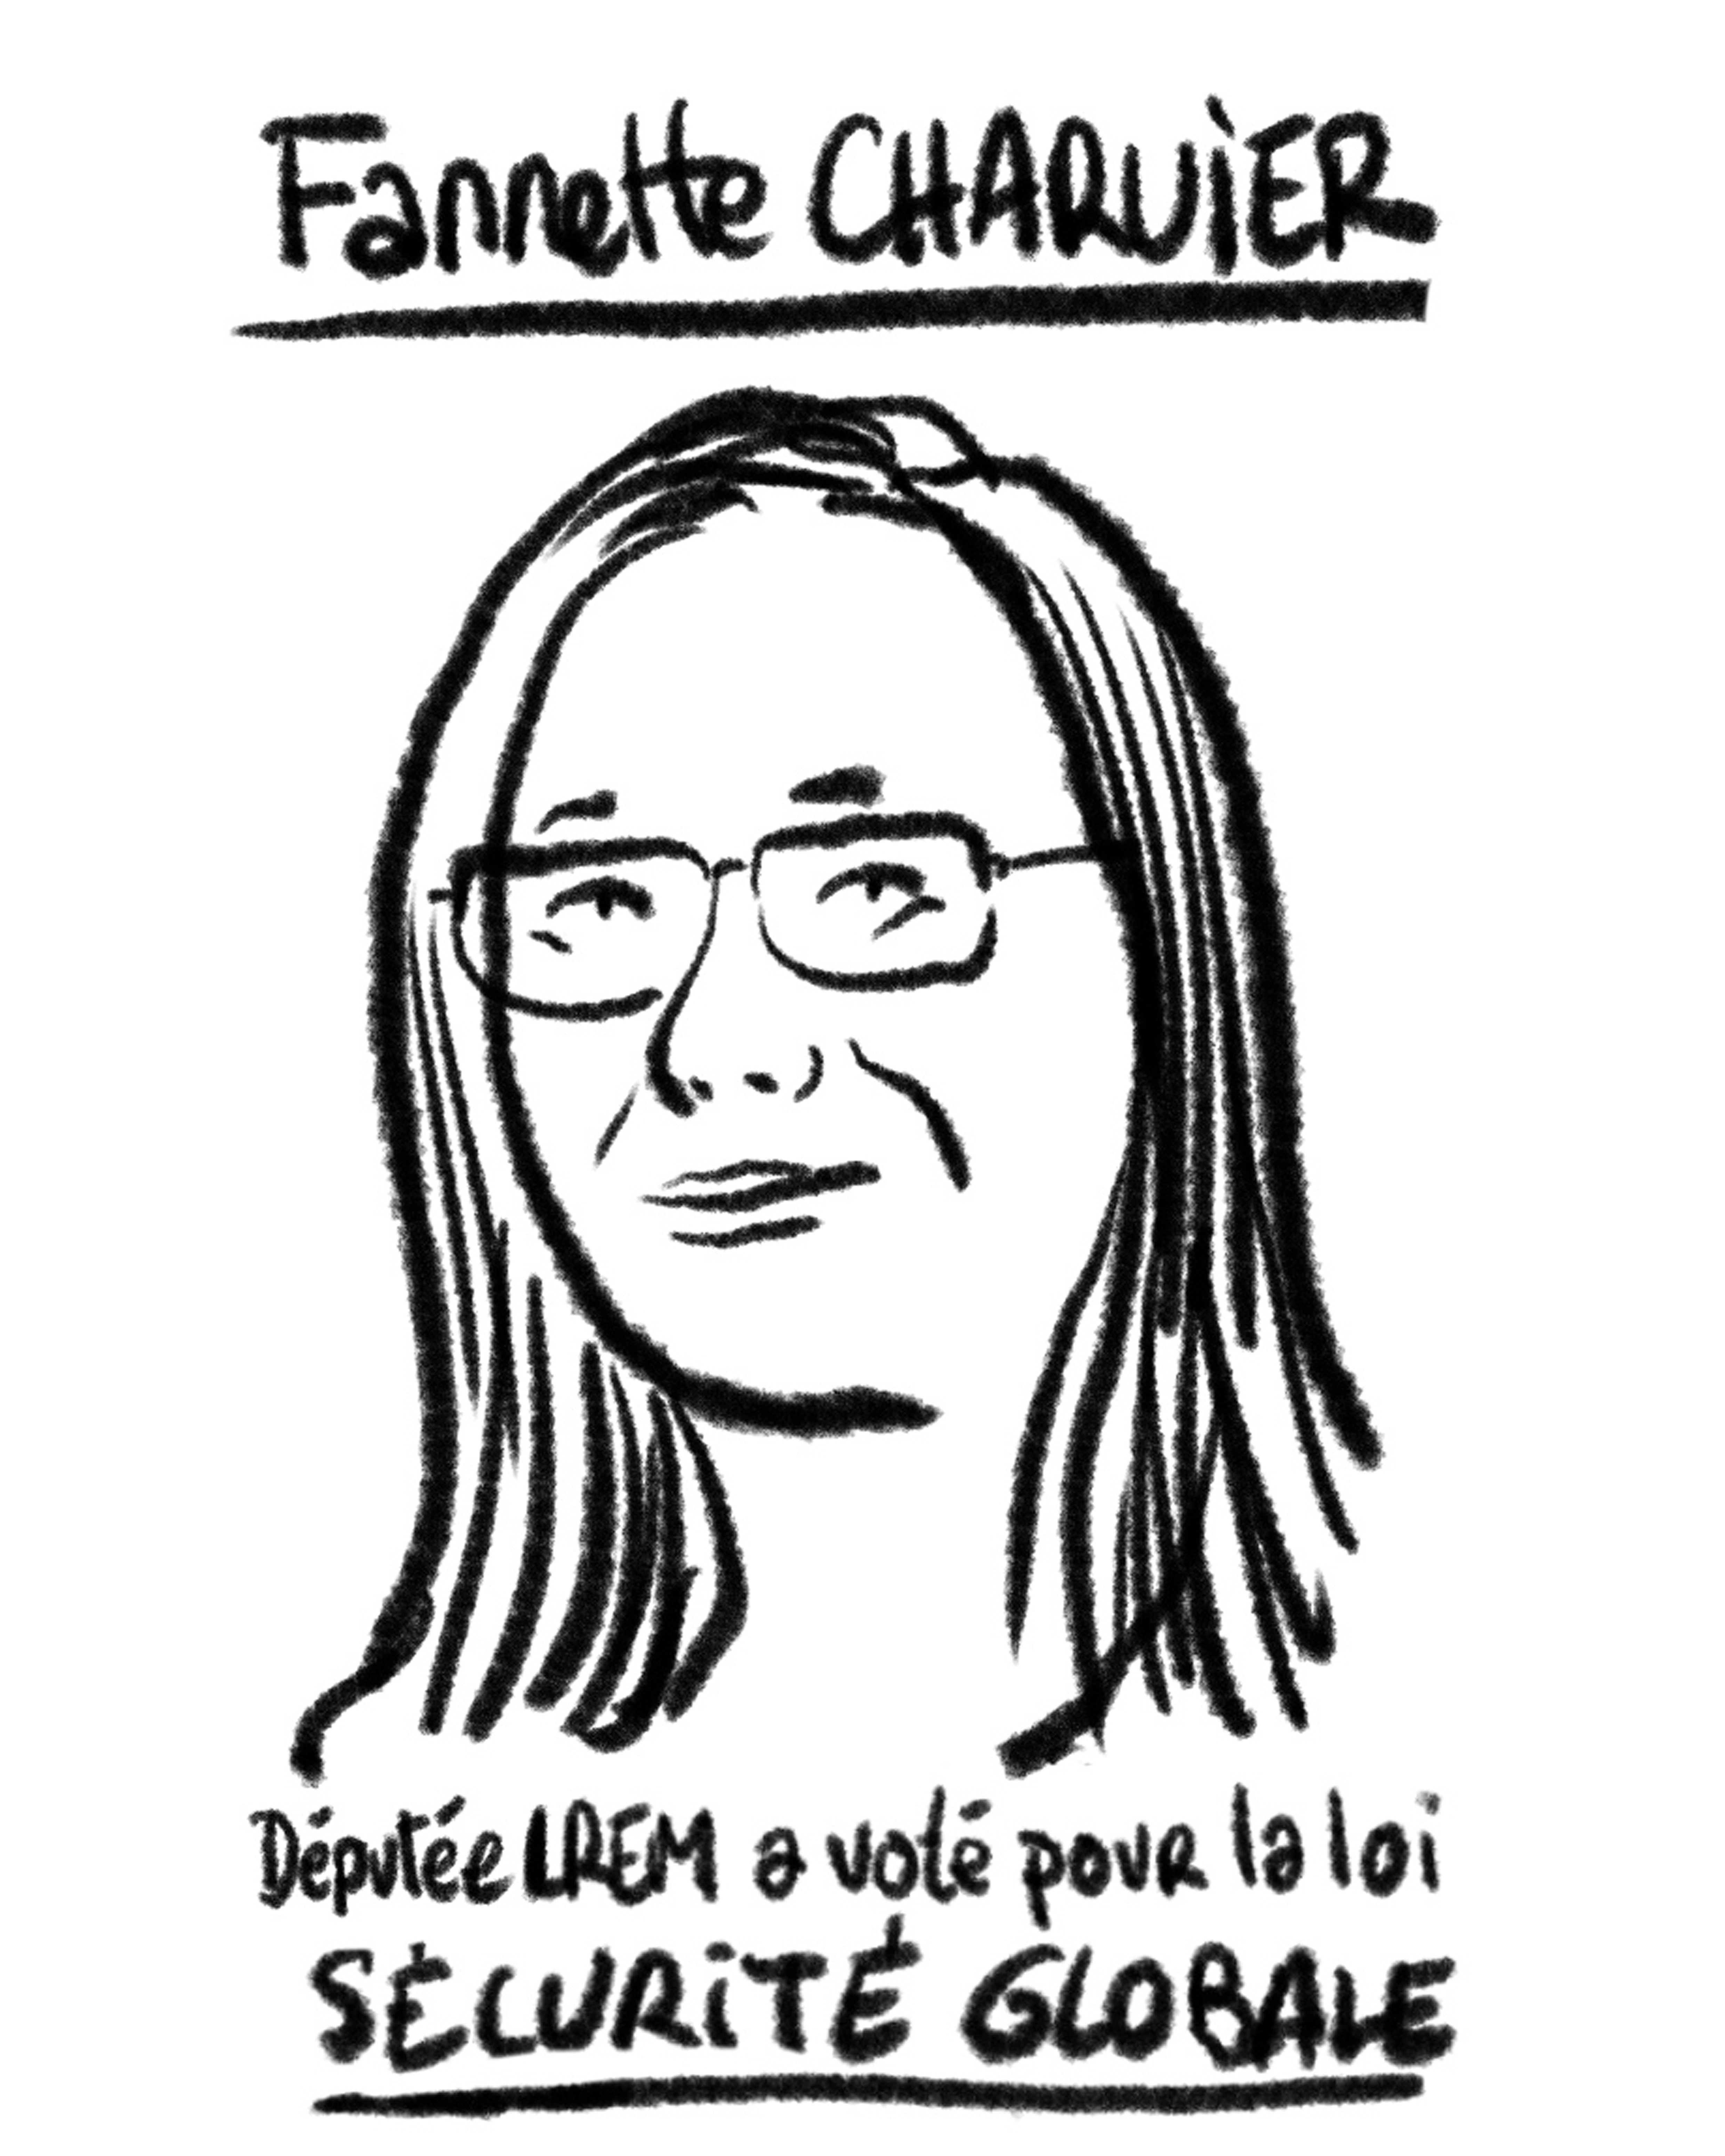 Fannette CHARVIER
Députée LREM a voté pour la loi
SÉCURITÉ GLOBALE